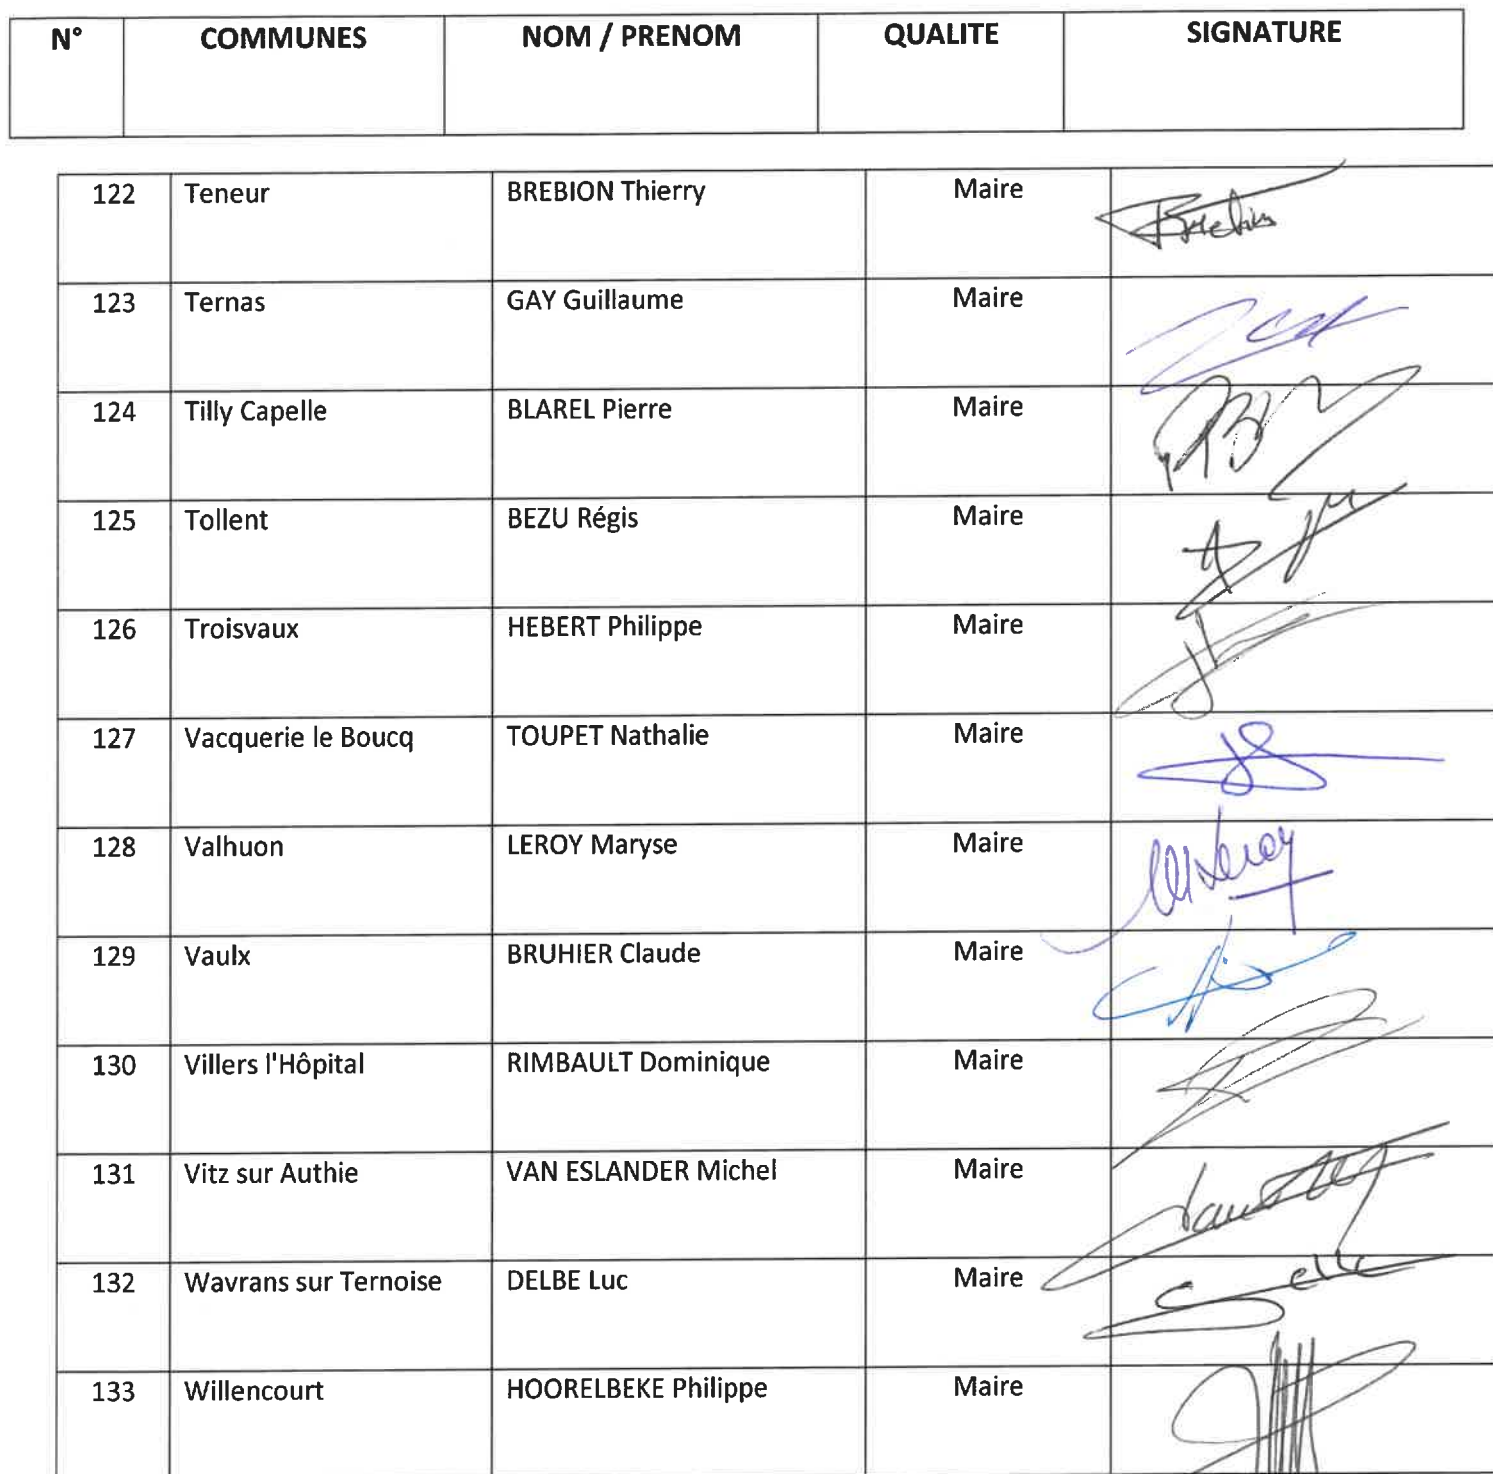 N° COMMUNES NOM / PRENOM QUALITE SIGNATURE
122 Teneur BREBION Thierry Maire
123 Ternas GAY Guillaume Maire
124 Tilly Capelle BLAREL Pierre Maire
125 Tollent BEZU Régis Maire
126 Troisvaux HEBERT Philippe Maire
127 Vacquerie le Boucq TOUPET Nathalie Maire
128 Valhuon LEROY Maryse Maire
129 Vaulx BRUHIER Claude Maire
130 Villers l'Hôpital RIMBAULT Dominique Maire
131 Vitz sur Authie VAN ESLANDER Michel Maire
132 Wavrans sur Ternoise DELBE Luc Maire
133 Willencourt HOORELBEKE Philippe Maire